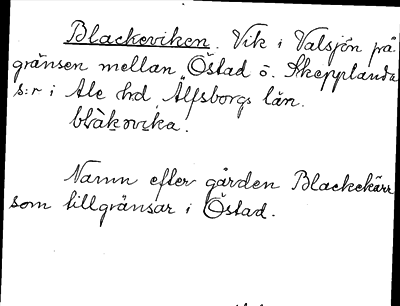 Blackeviken. Vik i Valsjön på
gränsen mellan Östad o. Skepplanda
s:r i Ale hd Älfsborgs län.
blàkovika.
Namn efter gården Blackekärr
som tillgränsar i Östad.